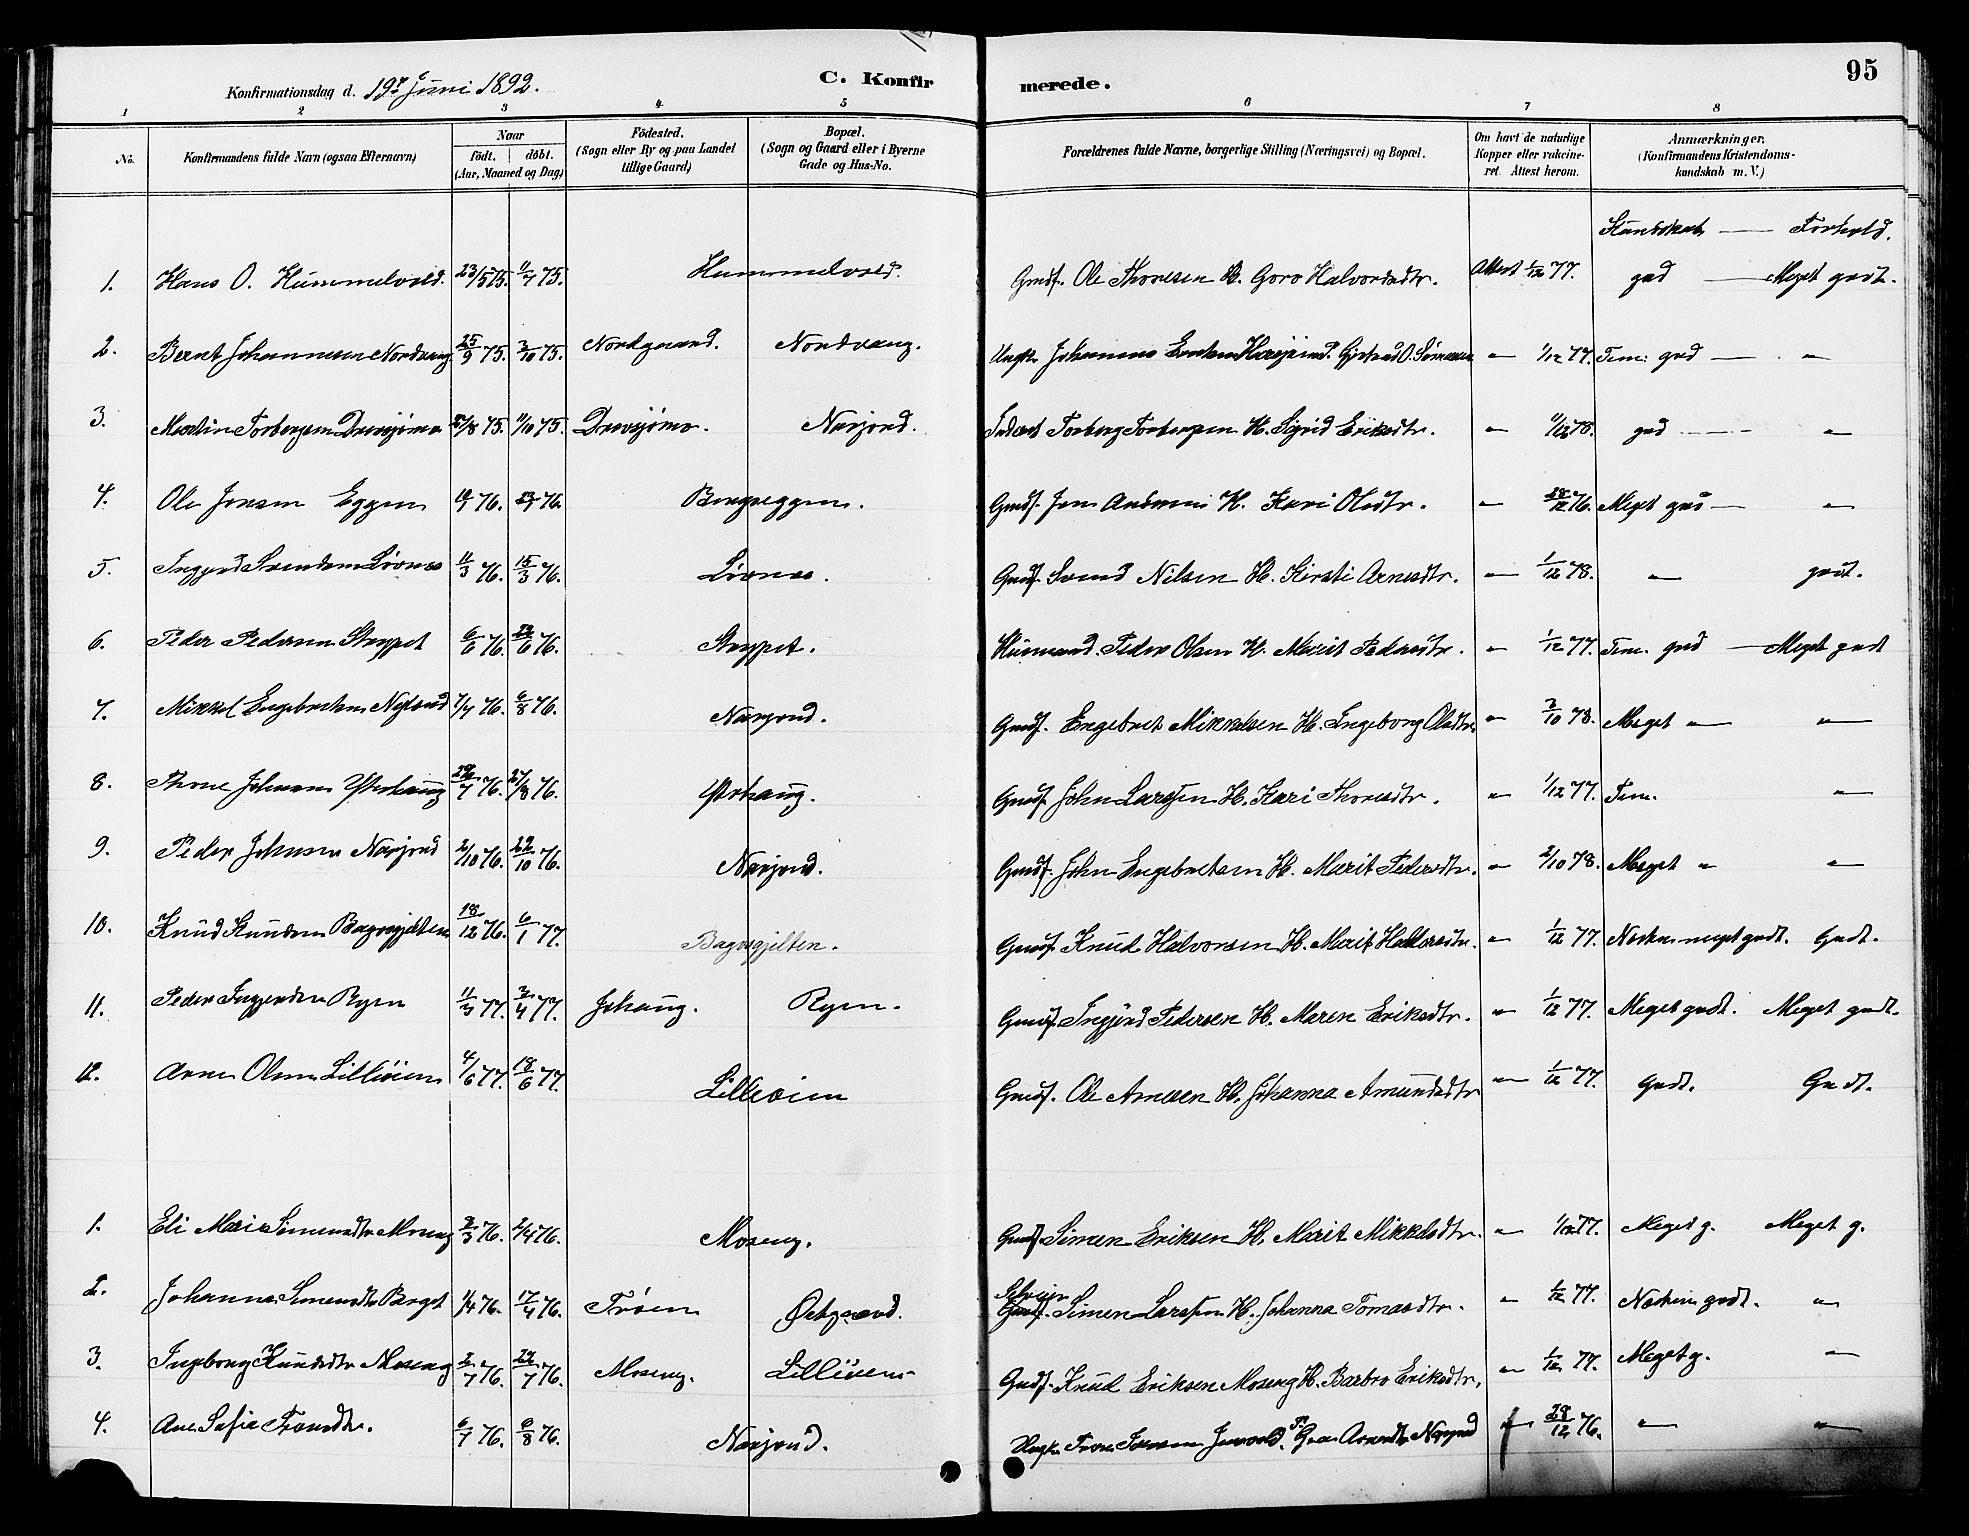 Konfirmationsdag d. 19de Juni 1892.
C. Konfir
merede.
95
1 2 3 4 5 6 7 8
No. Konfirmandens fulde Navn (ogsaa Efternavn) Naar födt. döbt. (Aar, Maaned og Dag) Födested. (Sogn eller By og paa Landet tillige Gaard) Bopæl. (Sogn og Gaard eller i Byerne Gade og Hus-No. Forældrenes fulde Navne, borgerlige Stilling (Næringsvei) og Bopæl. Om havt de naturlige Kopper eller vakcineret. Attest herom. Anmærkninger. (Konfirmandens Kristendomskundskab m. V.)
Kundskab — Forhold.
1. Hans O. Hummelvold. 23/5 75. 11/7 75. Hummelvold. Gmdf. Ole Thoresen H. Goro Halvorsdtr. Attest 1/12 77. god — Meget godt.
2. Bernt Johannesen Nordvang 25/9 75. 3/10 75. Nordgaard. Nordvang. Ungk. Johannes Gjertrud O. " 1/12 77. Tem: god — "
3. Martin Torbergsen Drevsjømo 75. 11/10 75. Drevsjømo. Narjord. Torberg Torbergsen H. Sigrid Eriksdtr. " 11/12 78. god — "
4. Ole Jonsen Eggen 76. 76. Bergseggen. Gmdf. Jon H. Kari Olsdtr. " 28/12 76. Meget god — "
5. Ingjerd Svendsen Lövnes 11/3 76. 15/3 76. Lövnes. Gmdf. Svend Nilsen H. Kirsti Arnesdtr. " 1/12 78. " godt.
6. Peder Pedersen Stoppet 6/6 76. 6 76. Stoppet. Husmand. Peder Olsen H. Marit Pedersdtr. " 1/12 77. Tem. god — Meget godt
7. Mikkel Engebretsen 1/7 76. 6/8 76. Narjord. Gmdf. Engebret Mikkelsen H. Ingeborg Olsdtr. " 2/10 78. Meget " "
8. Thore Johnsen Ystehaug 7 76. 27/8 76. Ystehaug. Gmdf. John Larssen H. Kari Thoresdtr. " 1/12 77. Tem. "
9. Peder Johnsen Narjord 2/10 76. 22/10 76. Narjord. Gmdf. John Engebretsen H. Marit Pedersdtr. " 2/10 78. Meget " "
10. Knud Knudsen Bagosgjelten 18/12 76. 6/1 77. Bagosgjelten. Gmdf. Knud Halvorsen H. Marit " 1/12 77. Næsten meget godt. Godt.
11. Peder Ingjerdsen Ryen 11/3 77. 2/4 77. Johaug. Ryen. Gmdf. Ingjerd Pedersen H. Maren Eriksdtr. " 1/12 77. Meget godt. Meget godt.
12. Arne Olsen Lilleöien 4/6 77. 18/6 77. Lilleöien Gmdf. Ole Arnesen H. Johanna Amundsdtr " 1/12 77. Godt. Godt.
1. Eli Marie Simensdtr Moseng 3 76. 2/4 76. Moseng. Gmdf. Simen Eriksen H. Marit Mikkelsdtr. " 77. Meget g. Meget g.
2. Johanna Simensdtr Borget 1/4 76. 17/4 76. Tröen Östgaard. Selveier Gmdf. Simen Larssen H. Johanna Tomasdtr. " 1/12 77. Næsten godt. "
3. Ingeborg Knudsdtr Moseng 2/7 76. 7 76. Moseng. Lilleöien Gmdf. Knud Eriksen Moseng H. Barbro Eriksdtr. " 1/12 77. Meget g. "
4. Ane Sofie Tronsdtr. 6/7 76. 6/8 76. Narjord. Ungk. Tron Narjord " 28/12 76. " "